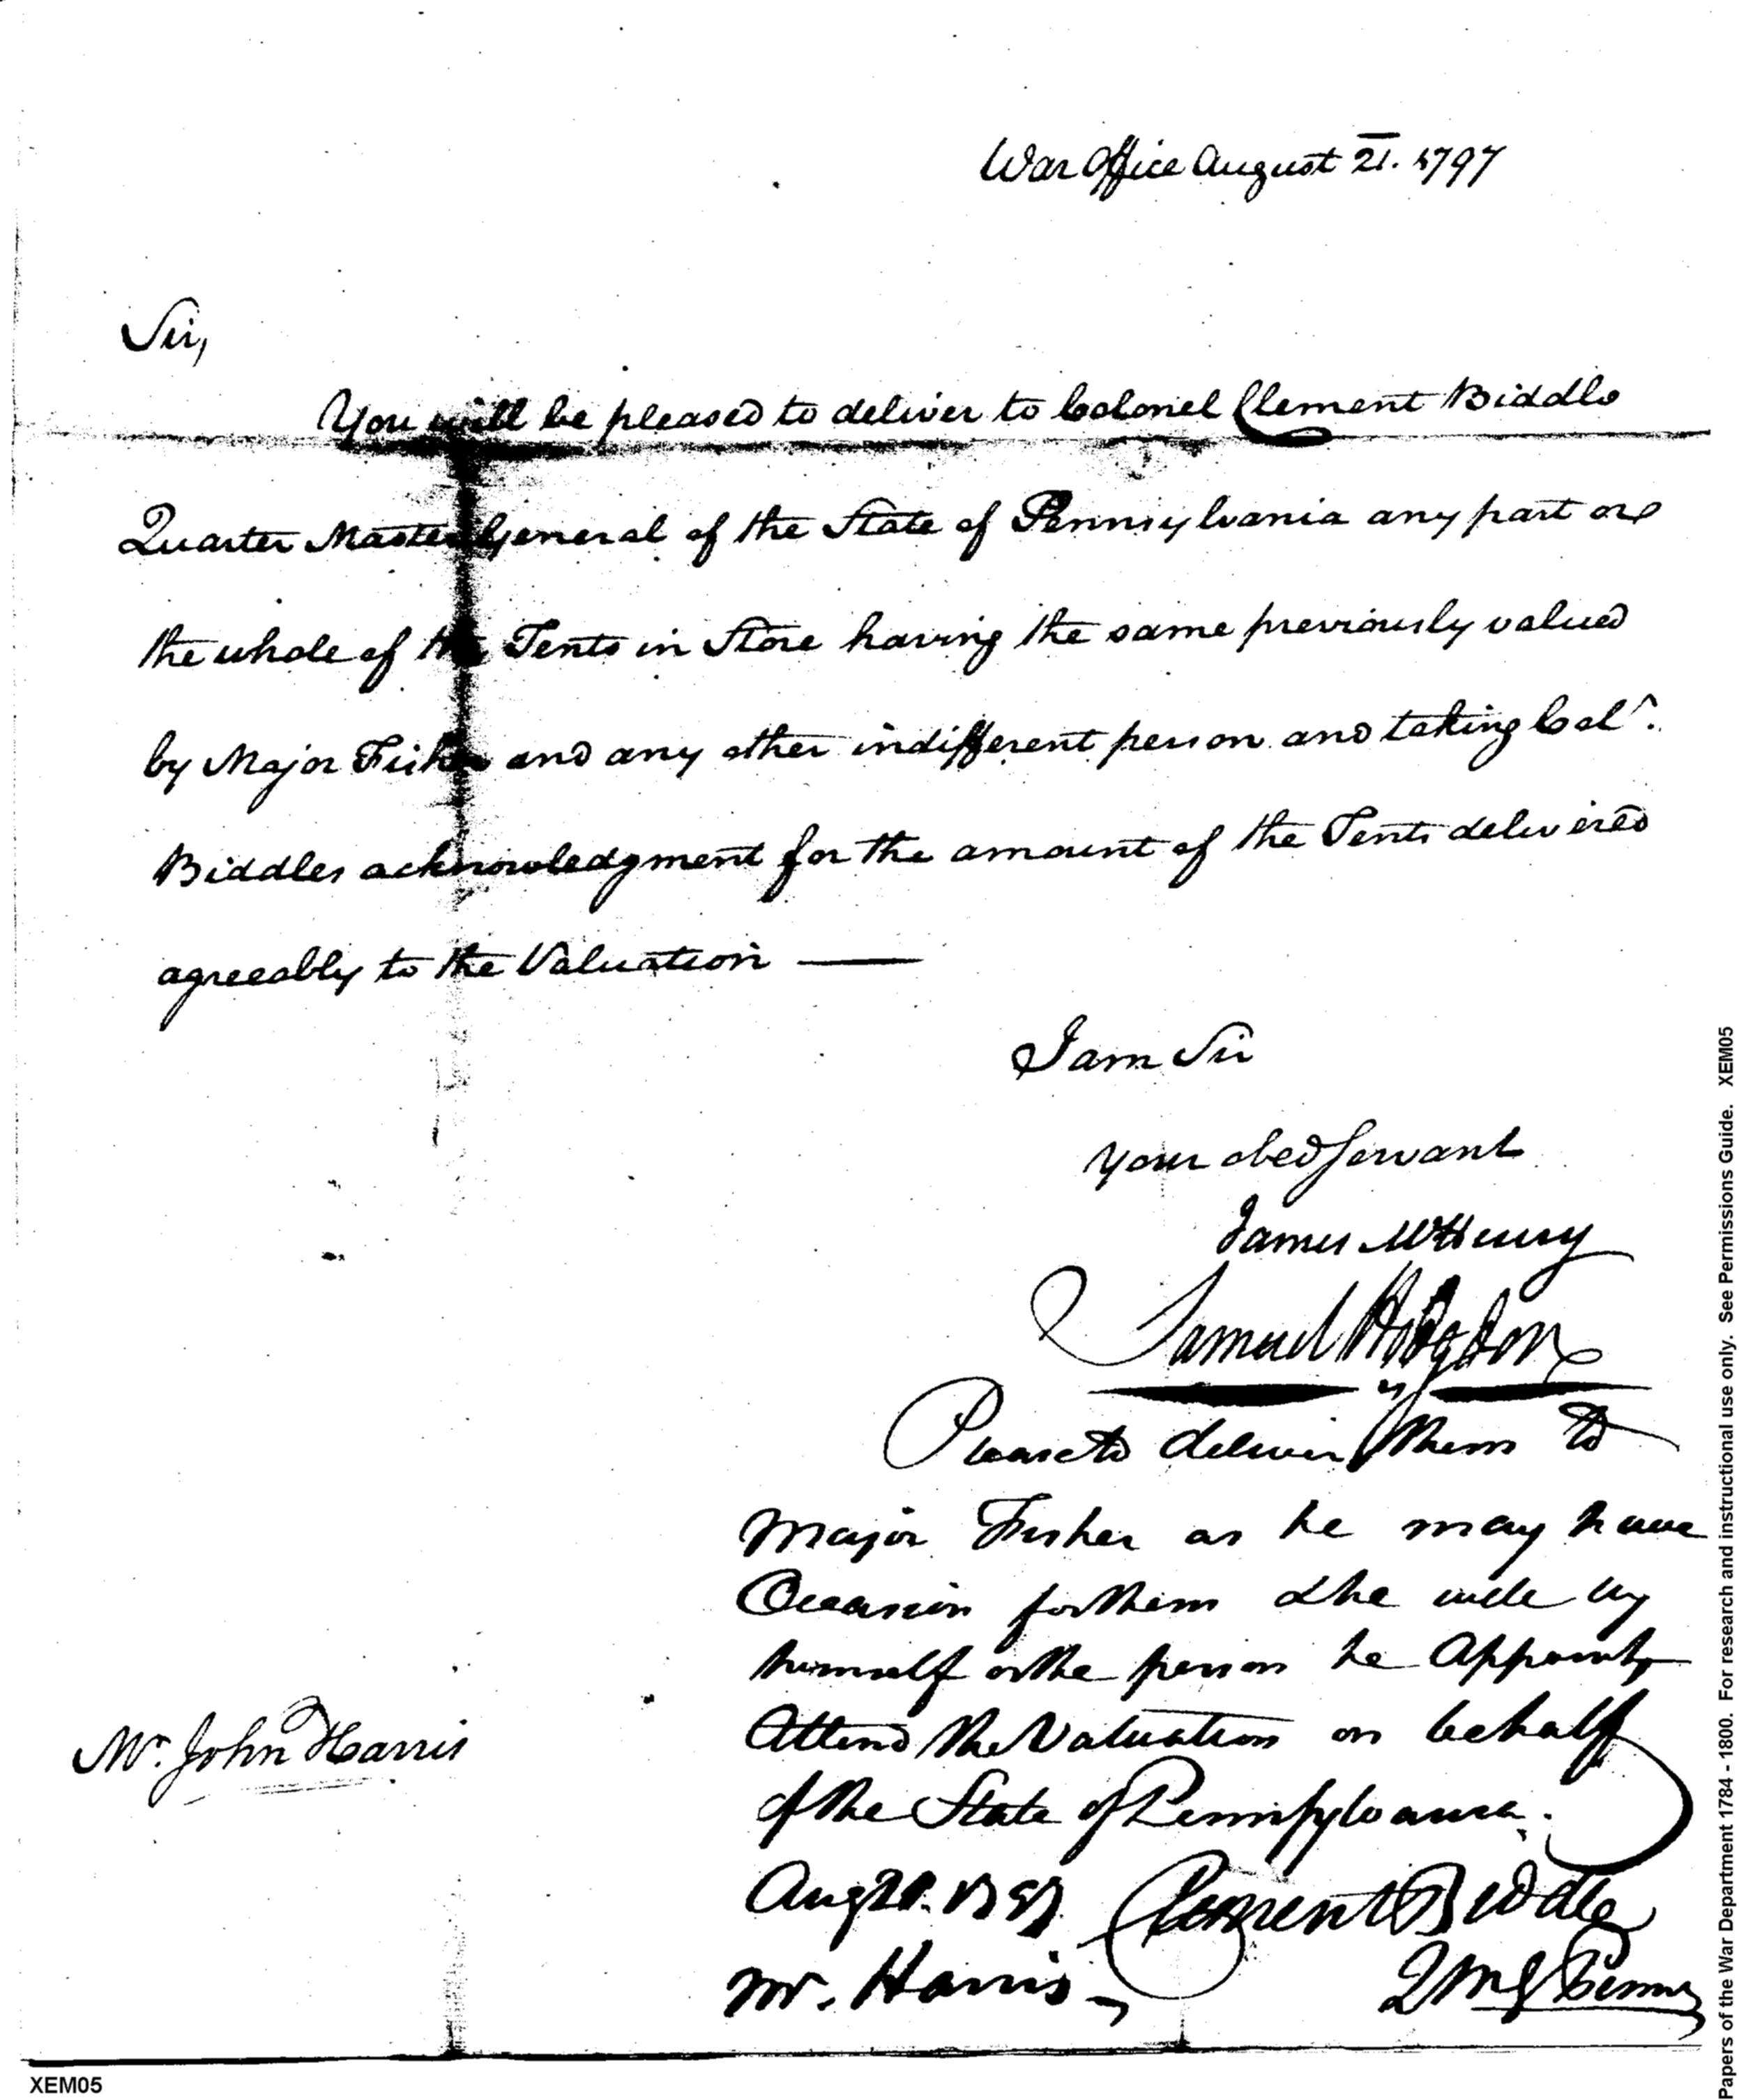 War Office August 21. 1797
Sir,
You will be pleased to deliver to Colonel Clement Biddle
Quarter Master General of the State of Pennsylvania any part or
the whole of the Tents in Store having the same previously valued
by Major Fisher and any other indifferent person and taking Col^o.
Biddles acknowledgment for the amount of the Tents delivered
agreeably to the Valuation —
I am Sir
your obed Servant
James McHenry
Samuel Hodgdon
Please to deliver them to
Major Fisher as he may have
Occasion for them & he will by
himself or the person he Appoints
Attend the Valuation on behalf
of the State of Pennsylvania.
Mr. John Harris
Aug 21. 1797 Clement Biddle
Mr. Harris QMG Penns
XEM05
Papers of the War Department 1784 - 1800. For research and instructional use only. See Permissions Guide. XEM05